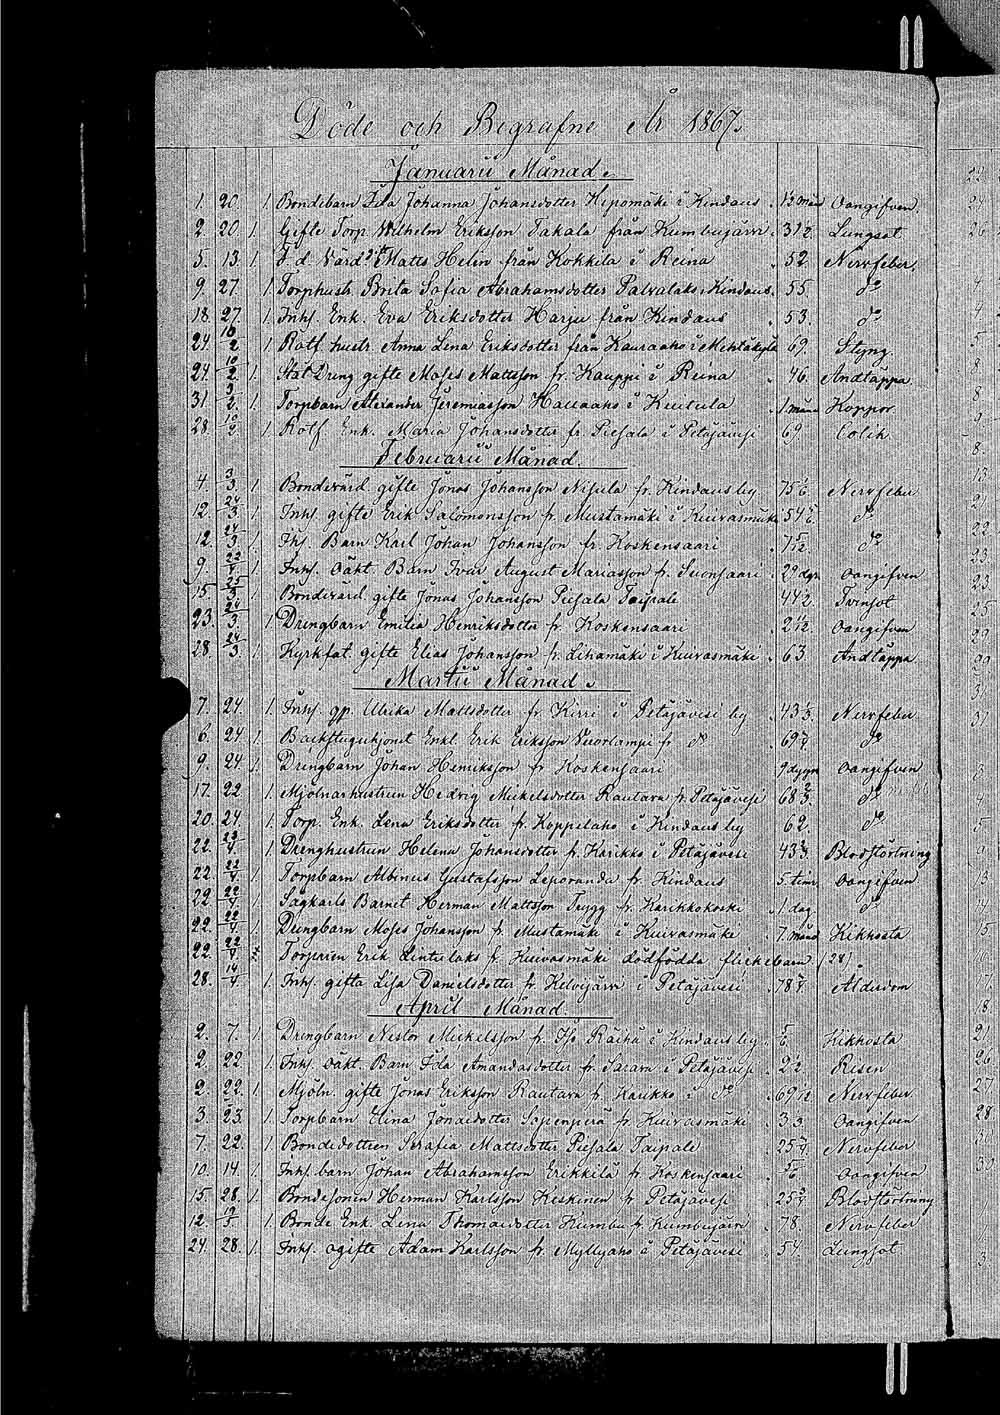 Döde och Begrafne År 1867.
Januarii Månad.
1. 20. 1. Bondebarn Ida Johanna Johansdotter Hepomäki i Kindaus 1/2 mån Oangifven.
2. 20. 1. Gifte Torp. Wilhelm Eriksson Takala från Kumbujärvi 31 Lungsot
5. 13. 1. F. d. Värd Matts Helin från Kokkila i Reina 52. Nervfeber.
9. 27. 1. Torphustr. Brita Sofia Abrahamsdotter Palvalaks i Kindaus. 55. do
18. 27. 1. Inhs. Enk. Eva Eriksdotter Harju från Kindaus 53. do
24 10/2 1. Rotf. hustr. Anna Lena Eriksdotter från Kauraaho i 69. Styng.
24. 10/2. 1. Stat Dreng gifte Moses Mattsson fr. Kauppi i Reina 46. Andtäppa.
31 3/2. 1. Torpbarn Alexander Jeremiasson i Keutula 1 mån Koppor
28. 10/2. 1. Rotf Enk. Maria Johansdotter fr. Piesala i Petäjävesi 69 Colik
Februarii Månad.
4. 3/3. 1. Bondevärd. gifte Jonas Johansson Nisula fr. Kindaus by 75 Nervfeber
12. 24/3 1. Inhs. gifte Erik Salomonsson fr. Mustamäki i Kuivasmäki 54 do
12. 24/3 1. Ihs. Barn Karl Johan Johansson fr. Koskensaari do
9. 22/4 1. Inhs. oäkt. Barn Ivar August Mariasson fr. Suonsaari 29 dgr Oangifven
15 25/3 1. Bondevärd. gifte Jonas Johansson Piesala Taipale 44 Tvinsot
23. 24/3. 1. Drengbarn Emilia Henriksdotter fr. Koskensaari 2 Oangifven
28. 24/3. 1. Kyrkfat. gifte Elias Johansson fr. Lihamäki i Kuivasmäki 63 Andtäppa
Martii Månad.
7. 24. 1. Inhs. gp. Ulrika Mattsdotter fr. Kirri i Petäjävesi by 43 Nervfeber
6. 24. 1. Enkl Erik Eriksson Vuorlampi fr do 69 do
9. 24 1. Drengbarn Johan Henriksson fr Koskensaari 9 dygn Oangifven
17. 22. 1. Mjölnarhustrun Hedvig Mickelsdotter Rautava fr. Petäjävesi 68 do
20. 24 1. Torp. Enk. Lena Eriksdotter fr. Koppelaho i Kindaus by 62. do
22. 22/4 1. Drenghustrun Helena Johansdotter fr. Karikko i Petäjävesi 43 Blodstörtning
22. 22/4 1. Torpbarn Albinus Gustafsson Leporanda fr. Kindaus 5. tim. Oangifven
22 22/4. 1. Sågkarls Barnet Herman Mattsson Trygg fr. Karikkokoski 1 dag. do
22. 22/4. 1. Drengbarn Moses Johansson fr. Mustamäki i Kuivasmäki 7. mån Kikhosta
22. 22/4 Torparen Erik Lintulaks fr. Kuivasmäki dödfödda flickebarn (28)
28. 14/4. 1. Inhs. gifta Lisa Danielsdotter fr. Kelvijärvi i Petäjävesi 78 Ålderdom
April Månad.
2. 7. 1. Drengbarn Nestor Mickelsson fr. Iso Räihä i Kindaus by Kikhosta
2. 22. 1. Inhs. oäkt. Barn Ida Amandasdotter fr. Sarava i Petäjävesi 2 Risen
2. 22. 1. Mjöln. gifte Jonas Eriksson Rautava fr. Karikko i do 69 Nervfeber
3. 23. 1. Torpbarn Elina Jonasdotter Sapenperä fr Kuivasmäki 3 Oangifven
7. 22. 1. Bondedottren Serafia Mattsdotter Piesala Taipale 25 Nervfeber
10. 14. 1. Inhs. barn Johan Abrahamsson Erikkilä fr Koskensaari Oangifven
15. 28. 1. Bondesonen Herman Karlsson Keskinen fr Petäjävesi 25 Blodstörtning
12. 19/5 1. Bonde Enk. Lena Thomasdotter Kumbu fr Kumbujärvi 78. Nervfeber
24. 28. 1. Inhs. ogifte Adam Karlsson fr. Myllyaho i Petäjävesi 54. Lungsot